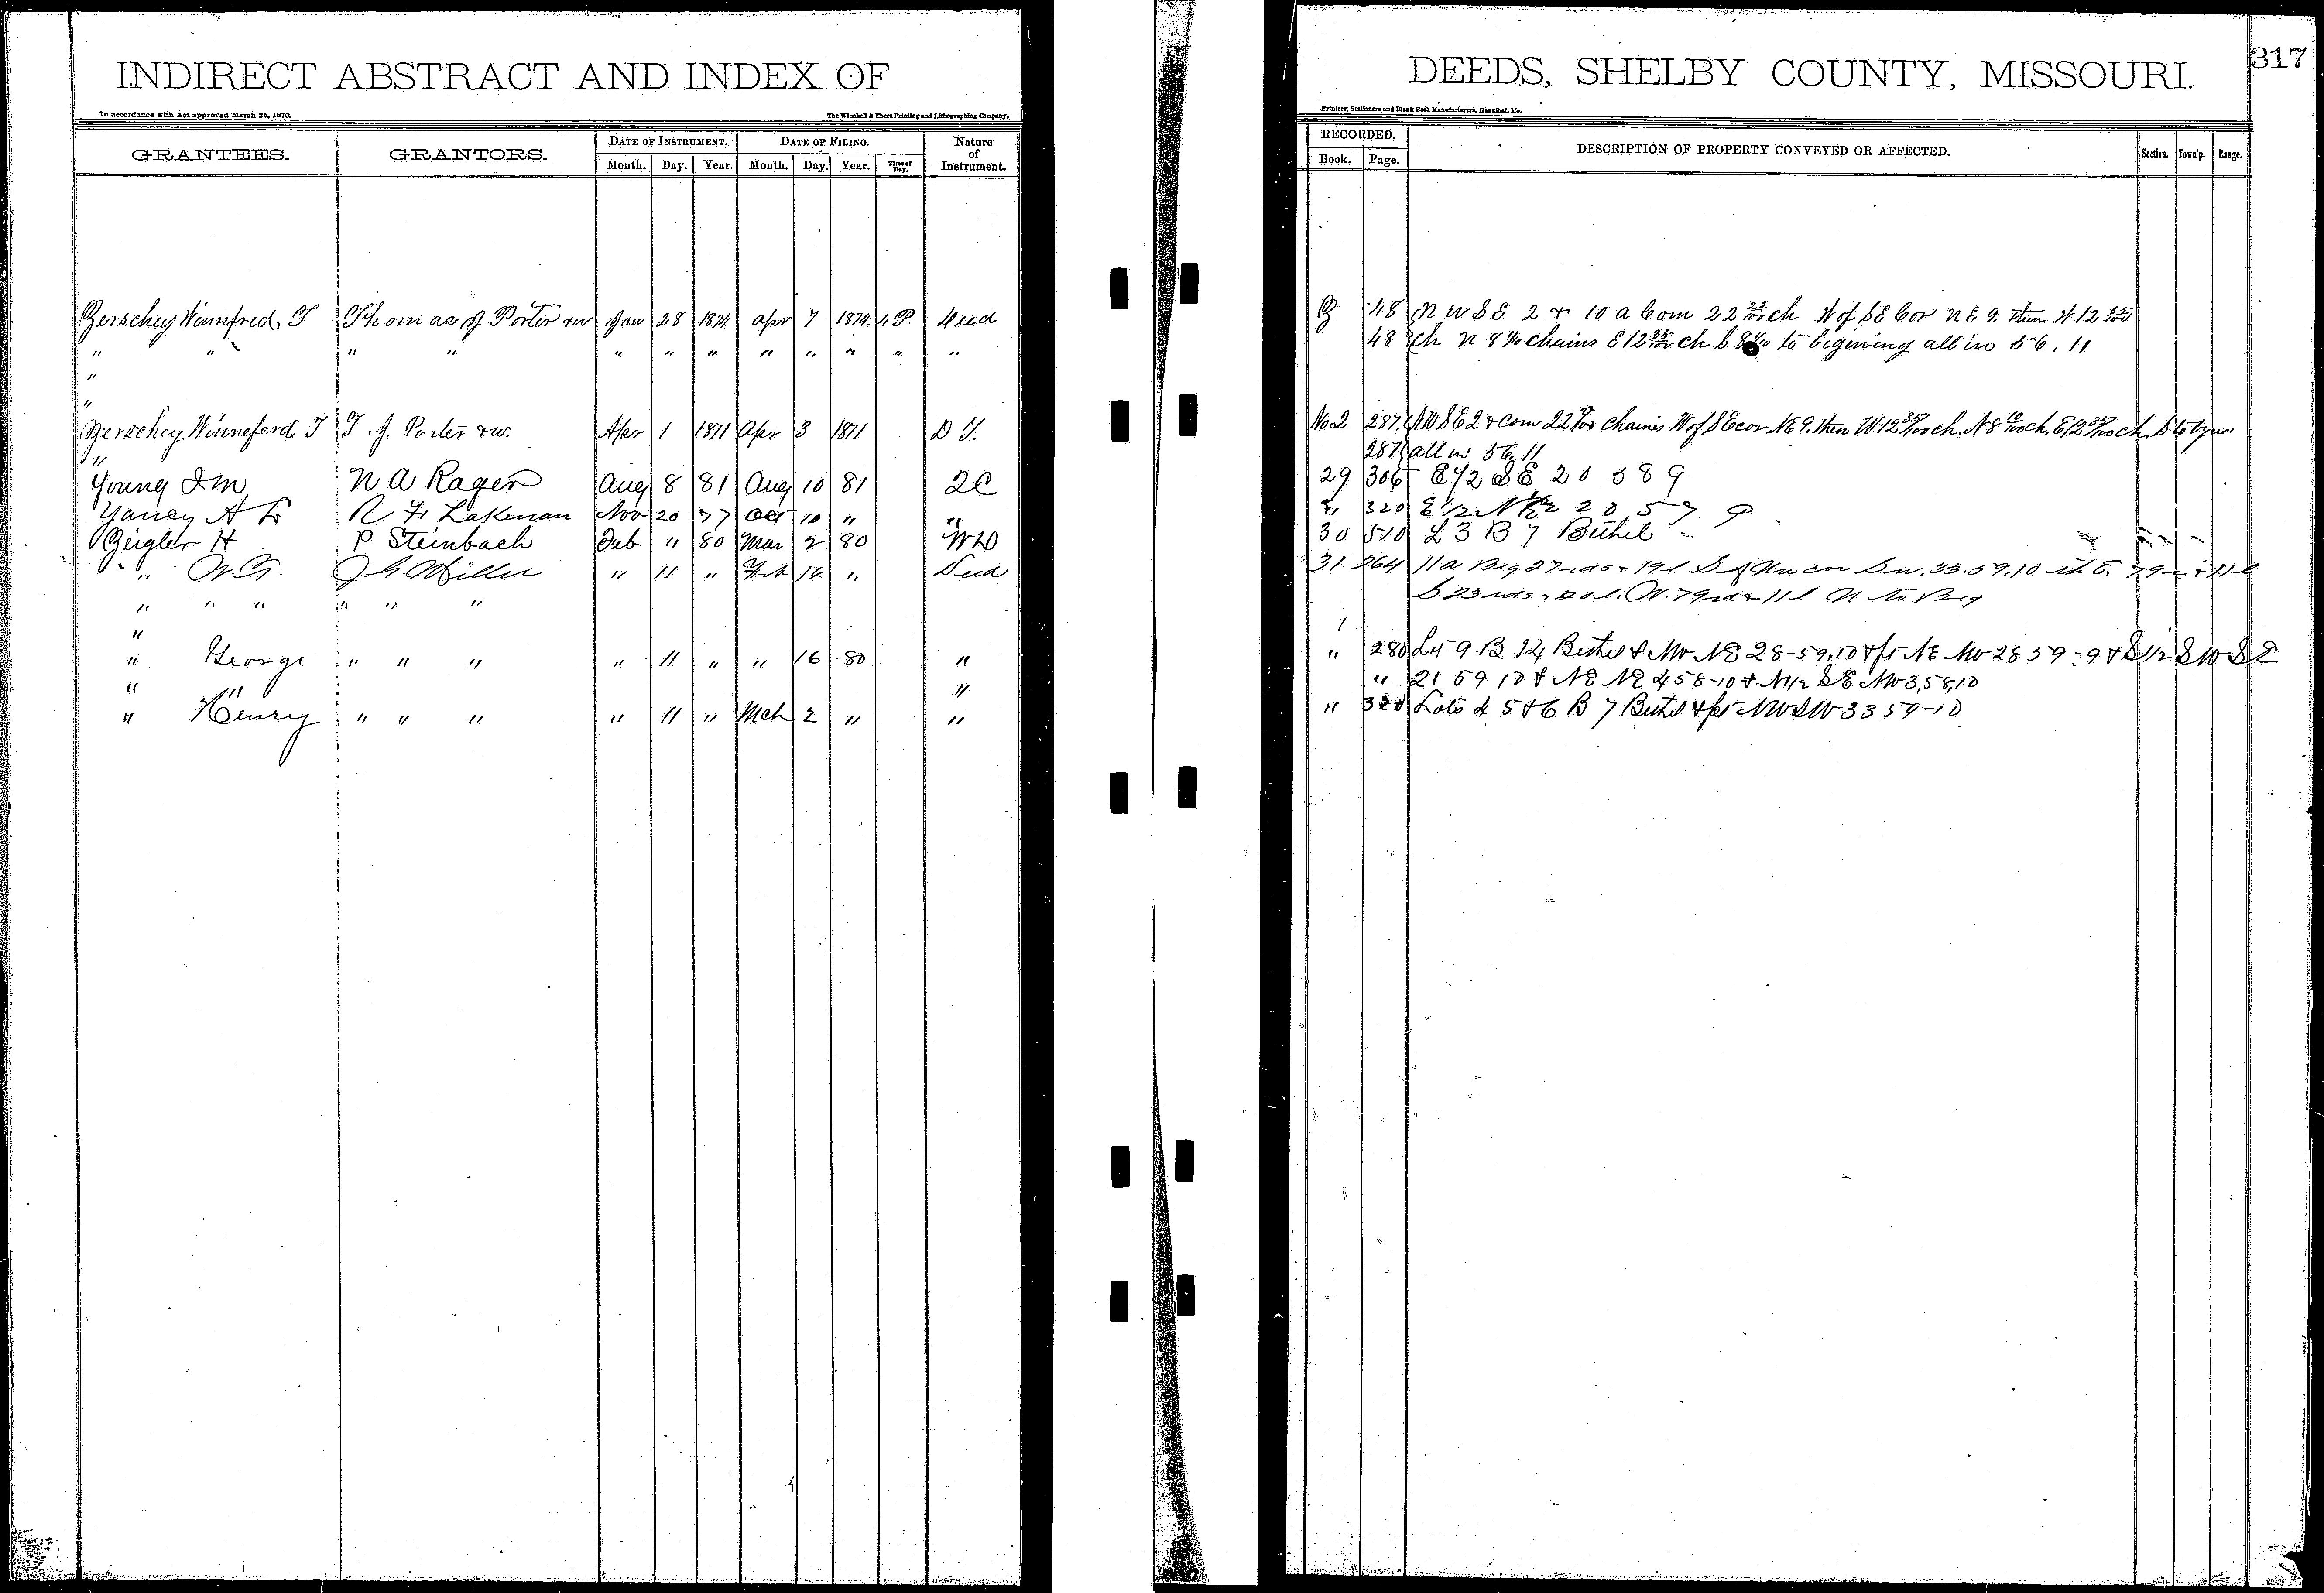 INDIRECT ABSTRACT AND INDEX OF
DEEDS, SHELBY COUNTY, MISSOURI.
317
In accordance with Act approved March 28, 1870.
The Winchell & Ebert Printing and Lithographing Company,
Printers, Stationers and Blank Book Manufacturers, Hannibal, Mo.
GRANTEES. GRANTORS. DATE OF INSTRUMENT. DATE OF FILING. Nature of Instrument. RECORDED. DESCRIPTION OF PROPERTY CONVEYED OR AFFECTED. Section. Town'p. Range.
Month. Day. Year. Month. Day. Year. Time of Day. Book. Page.
Zerschey Winnfred, T Thomas J Porter & w Jan 28 1874 Apr 7 1874 4 P. Deed 48 N W S E 2 & 10 a Com 22 22/100 ch W of S E Cor N E 9. then W 12
" " " " " " " " " " " " 48 ch N 8 1/10 chains E 12 35/100 ch S 8 1/10 to begining all in 56. 11
"
"
Zerschey Winneferd T T. J. Porter & w. Apr 1 1871 Apr 3 1871 D T. No 2 287 N W S E 2 & Com 22 chains W of S E cor N E 9. then W 12 35/100 ch. N 8 10/100 ch. E 12 35/100 ch. S to
" 287 all in 56. 11
Young I M N A Rager Aug 8 81 Aug 10 81 2C 29 306 E 1/2 S E 20 58 9
Yancy A L R F. Lakenan Nov 20 77 Oct 10 " " " 320 E 1/2 20 57 9
Zeigler H P Steinbach Feb " 80 Mar 2 80 WD 30 510 L 3 B 7 Bethel
" W. G. J. G. Miller " 11 " Feb 16 " Deed 31 264 11 a Beg 27 rds & 19 l S of cor 33. 59. 10
" " " " " " S 23 rds & 20 l. W. 79 rd & 11 l N to Beg
"
" George " " " " 11 " " 16 80 " " 280 Lot 9 B 14 Bethel & NW NE 28-59.10 & pt NE NW 28 59-9 & S 1/2 S W S E
" " " 21 59 10 & NE NE 4 58-10 & N 1/2 S E NW 3, 58, 10
" Henry " " " " 11 " Mch 2 " " " Lots 4 5 & 6 B 7 Bethel & pt NW SW 33 59-10